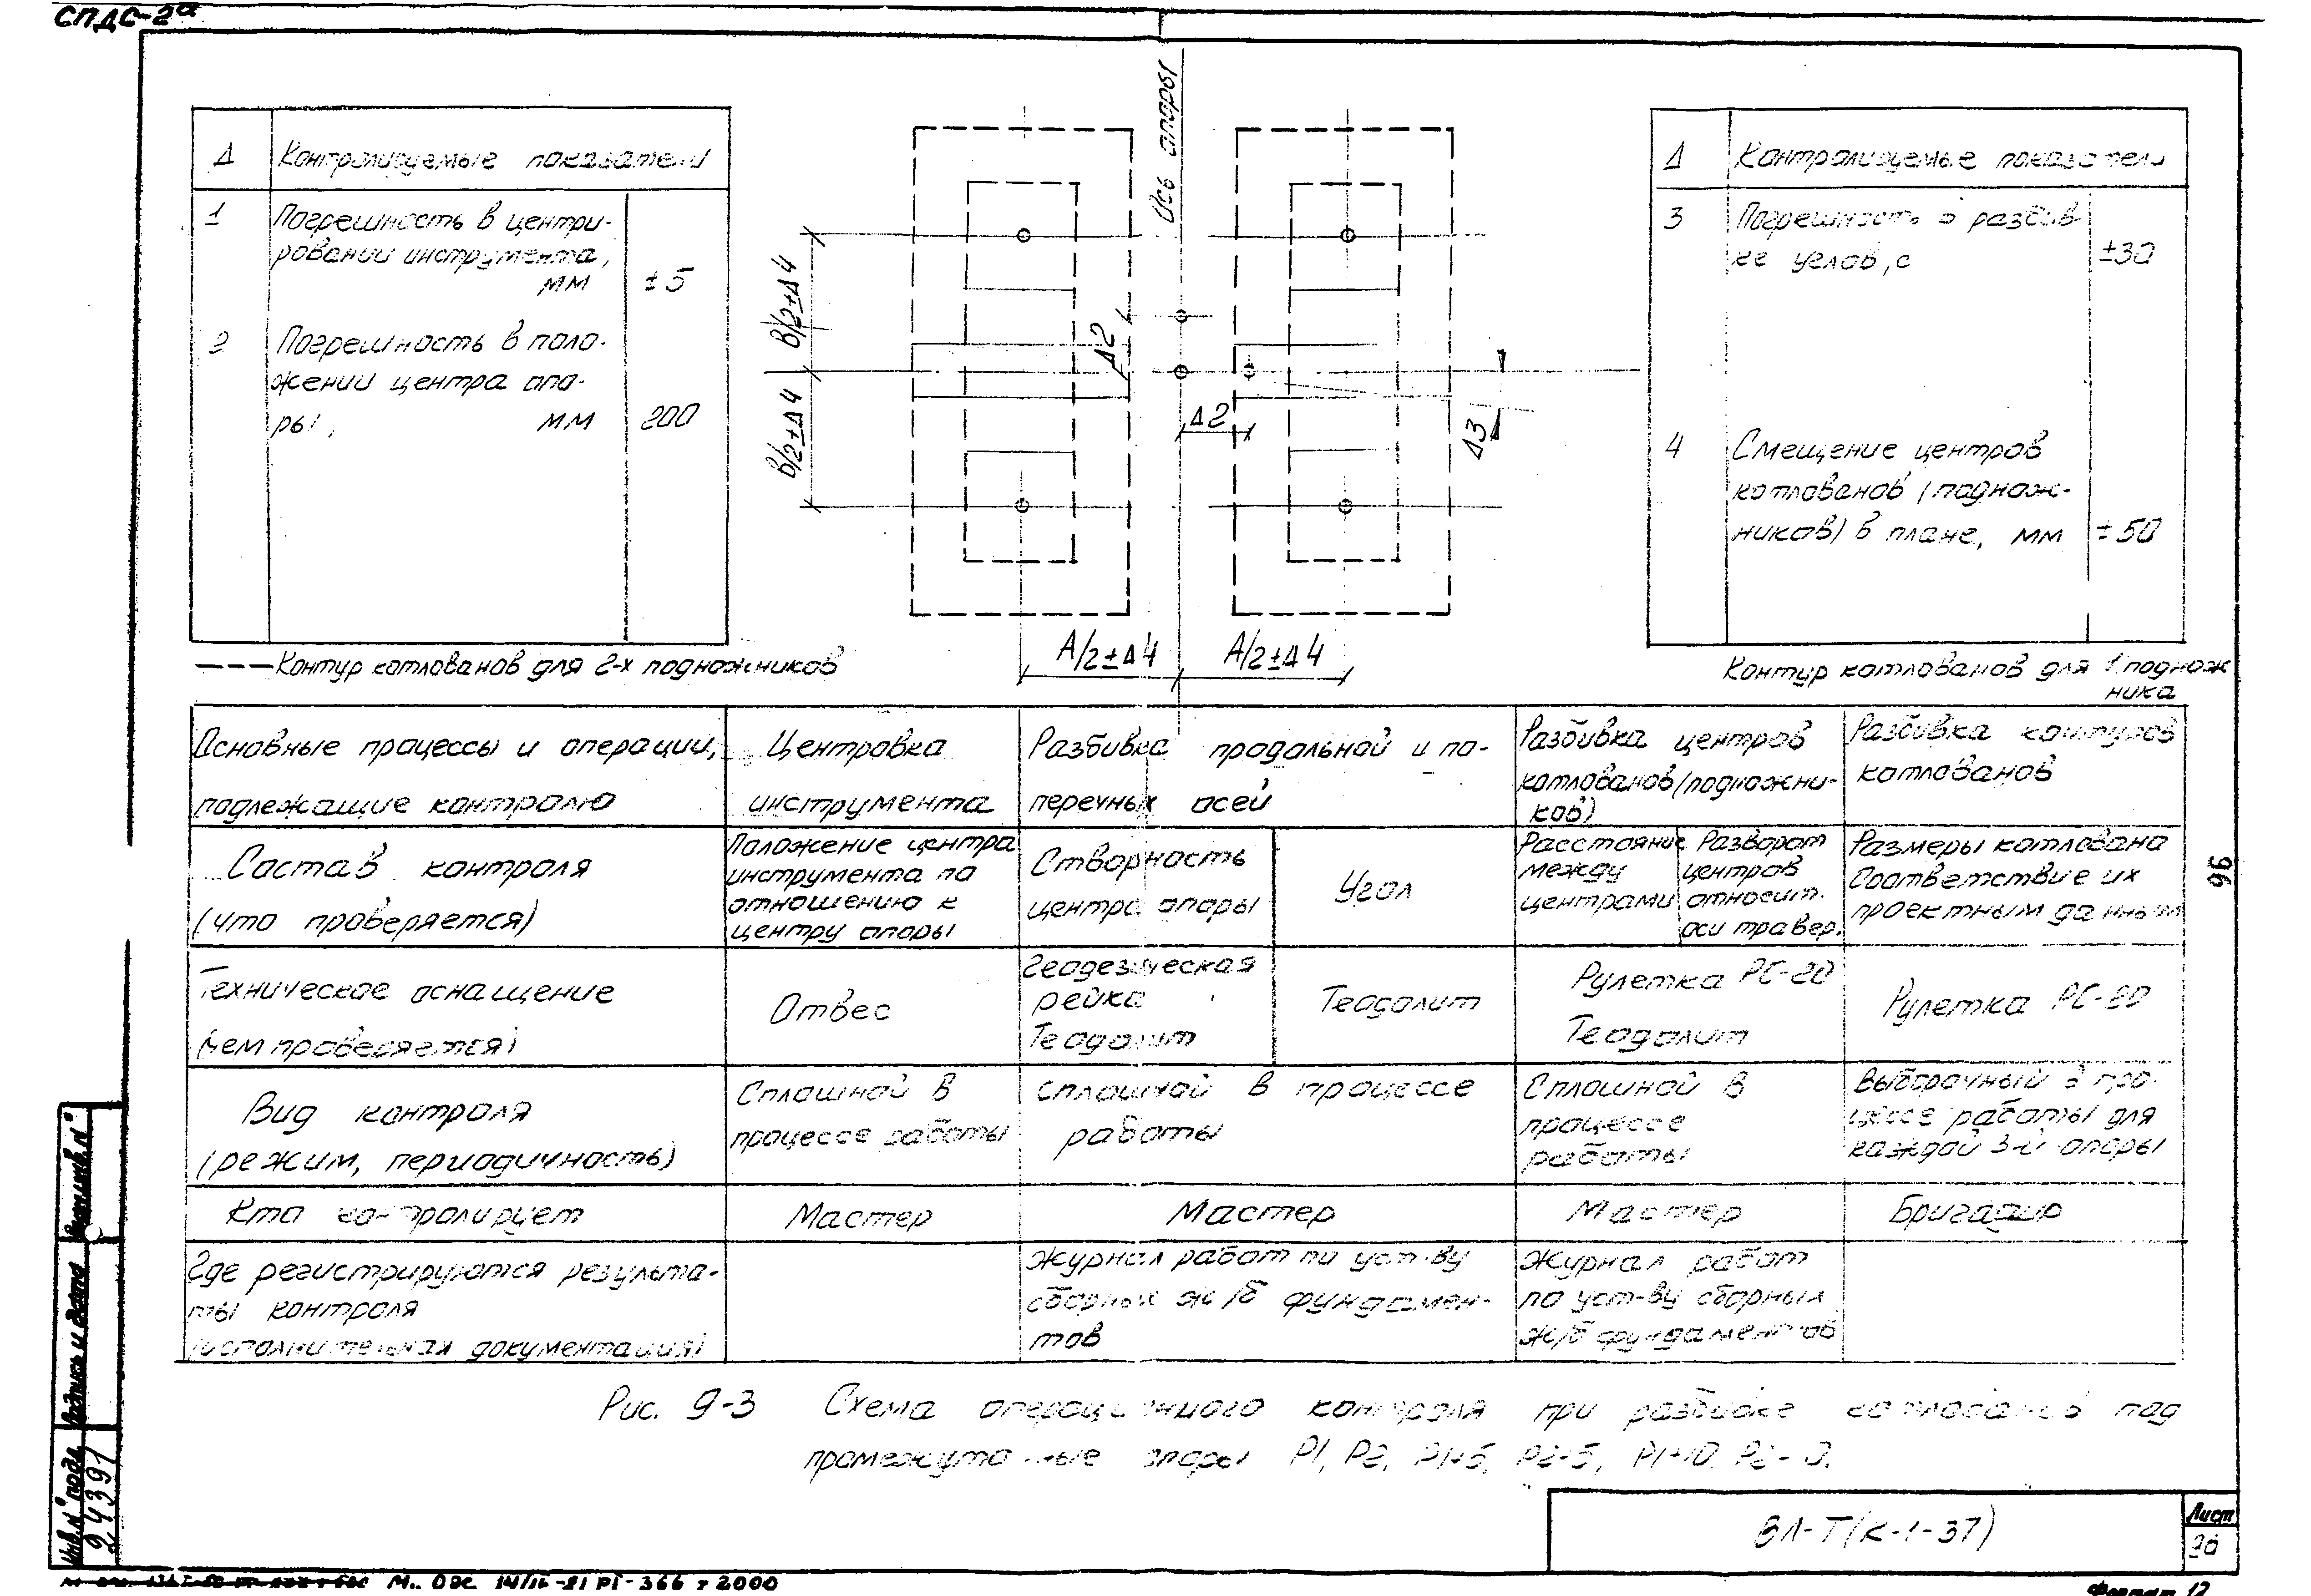 СПДС-2а
Δ Контролируемые показатели
1 Погрешность в центри-
ровании инструмента,
мм ±5
2 Погрешность в поло-
жении центра опо-
ры, мм 200
Контур котлованов для 2-х подножников
Ось опоры
В/2±Δ4
В/2±Δ4
Δ2
Δ2
Δ3
А/2±Δ4 А/2±Δ4
Δ Контролируемые показатели
3 Погрешность в разбив-
ке углов, с ±30
4 Смещение центров
котлованов (поднож-
ников) в плане, мм ±50
Контур котлованов для 1 поднож
ника
Основные процессы и операции,
подлежащие контролю
Центровка
инструмента
Разбивка продольной и по-
перечных осей
Разбивка центров
котлованов (подножни-
ков)
Разбивка контуров
котлованов
Состав контроля
(что проверяется)
Положение центра
инструмента по
отношению к
центру опоры
Створность
центра опоры
Угол
Расстояние
между
центрами
Разворот
центров
относит.
оси травер.
Размеры котлована
Соответствие их
проектным данным
Техническое оснащение
(чем проверяется)
Отвес
Геодезическая
рейка
Теодолит
Теодолит
Рулетка РС-20
Теодолит
Рулетка РС-20
Вид контроля
(режим, периодичность)
Сплошной в
процессе работы
сплошной в процессе
работы
Сплошной в
процессе
работы
Выборочный в про-
цессе работы для
каждой 3-й опоры
Кто контролирует
Мастер
Мастер
Мастер
Бригадир
Где регистрируются результа-
ты контроля
(исполнительная документация)
Журнал работ по уст-ву
сборных ж/б фундамен-
тов
Журнал работ
по уст-ву сборных
ж/б фундаментов
Рис. 9-3 Схема операционного контроля при разбивке котлованов под
промежуточные опоры Р1, Р2, Р1+5, Р2+5, Р1+10
ВЛ-Т(К-1-37)
Лист
96
Взам.инв.N°
Подпись и дата
Инв.N°подл.
24391
2000
Формат 12